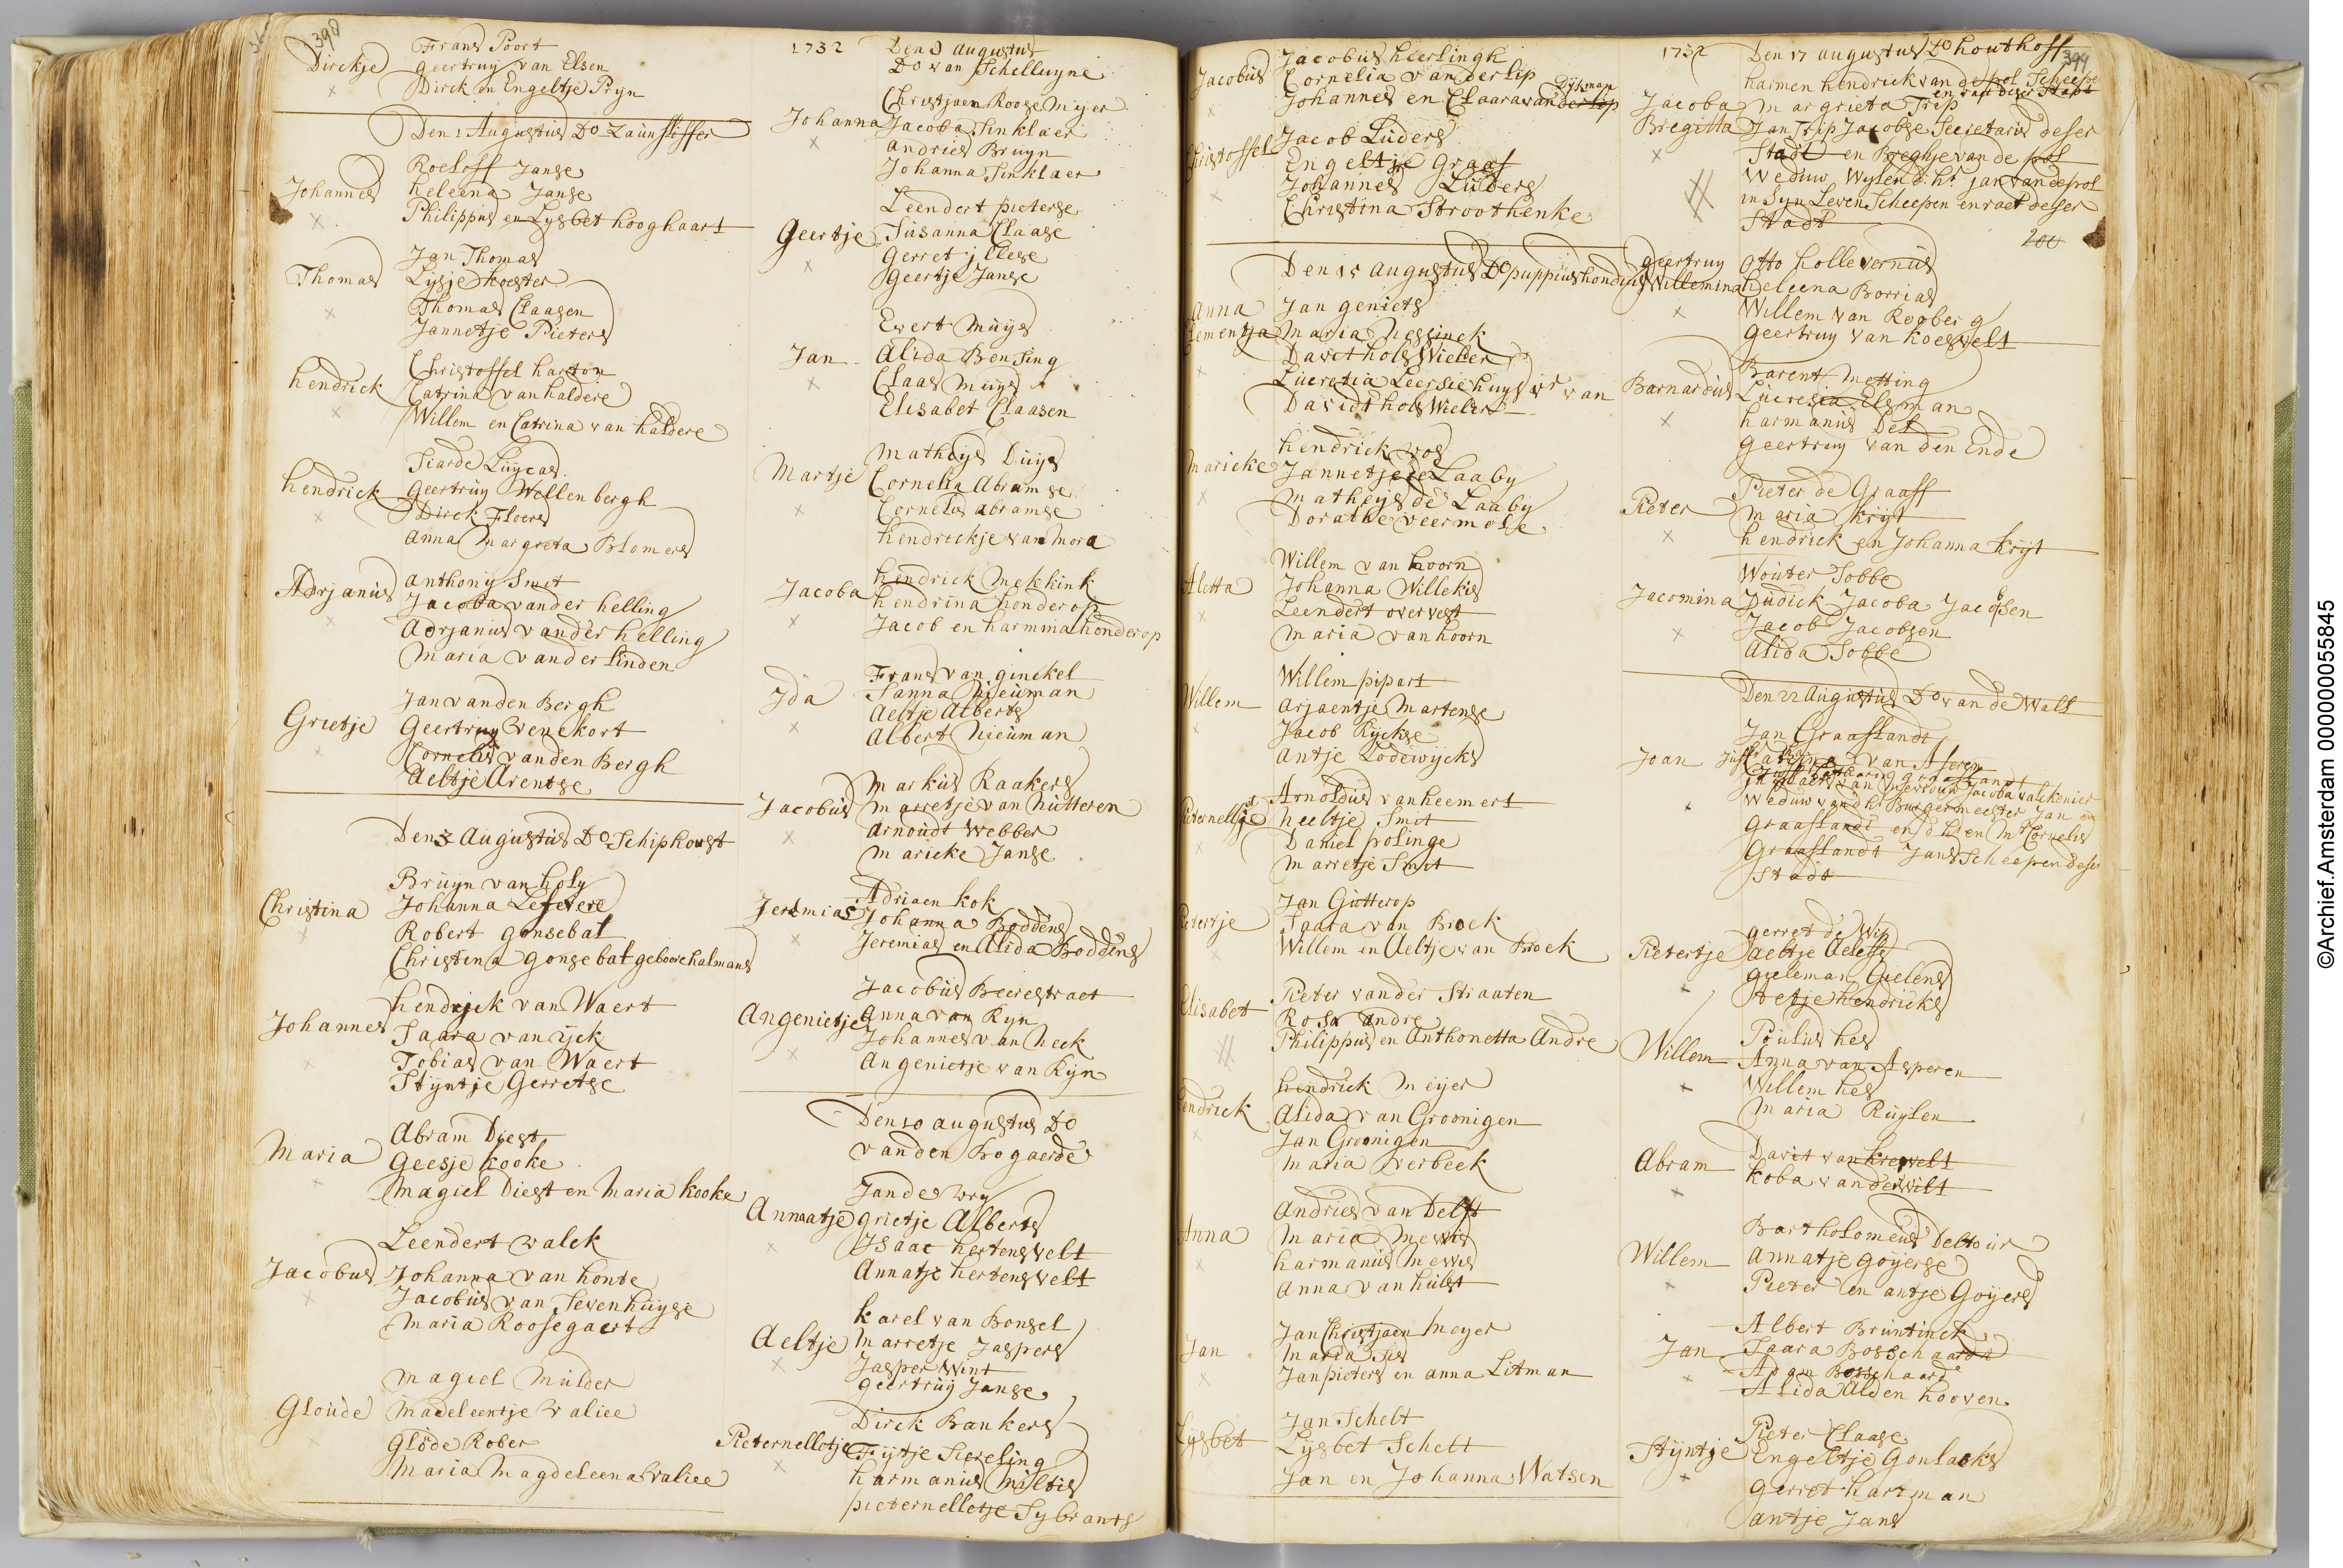 398
Dirckje
Frans Poort
geertruy van Elsen
Dirck en Engeltje Pryn
Den 1 Augustus Do Launslisser
Johannes
Roeloff Janse
heleena Janse
Philippus en Lysbet hooghaart
Thomas
Jan Thomas
Lysje koester
Thomas Claasen
Jannetje Pieters
hendrick
Christoffel harton
Catrina van haldere
Willem en Catrina van haldere
hendrick
Siarde Luycas
geertruy Wellenbergh
Dirck Floers
anna Margreta Blomers
Adrjanus
anthony Smit
Jacoba vander helling
Adrjanus vander helling
Maria vander linden
Grietje
Jan vanden Bergh
Geertruy Venekort
Cornelis vanden Bergh
Aeltje Arentse
Den 3 Augustus Do Schiphoust
Christina
Bruyn van holy
Johanna Lefevere
Robert gonsebat
Christina gonsebat geboore halmans
Johannes
hendrick van Waert
Saara van ijck
Tobias van Waert
Stijntje Gerretse
Maria
Abram Diest
Geesje kooke
Magiel Diest en Maria kooke
Jacobus
Leendert valck
Johanna van honte
Jacobus van Sevenhuyse
Maria Roosegaert
Gloude
Magiel Mulder
Madeleentje valiee
Glode Rober
Maria Magdeleena valiee
1732
Den 3 augustus
Do van Schelluyne
Johanna
Christjaen Roosemijer
Jacoba Sinklaer
andries Bruyn
Johanna Sinklaer
Geertje
Leendert pieterse
Susanna Claase
gerret jllese
geertje Janse
Jan
Evert Muys
Alida Bensing
Claas Muys
Elisabet Claasen
Martje
Mathijs Duys
Cornelia Abramse
Cornelis abramse
hendrickje van Mora
Jacoba
hendrick Mekkink
hendrina honderop
Jacob en harmina honderop
Jda
Frans van ginckel
Sanna Nieuman
Aeltje Alberts
Albert Nieuman
Jacobus
Markus Raakers
Marretje van Nutteren
arnoudt Webber
Marieke Janse
Jeremias
Adriaen kok
Johanna Boddens
Jeremias en Alida Boddens
Angenietje
Jacobus Beerestraet
Anna van Ryn
Johannes van Neck
Angenietje van Ryn
Den 10 augustus Do
vanden Bogaerde
Annatje
Jan de wry
grietje Alberts
Jsaac hertensvelt
Annatje hertensvelt
Aeltje
karel van Bonsel
Marretje Jaspers
Jasper Wint
geertruij Janse
Pieternelletje
Dirck Bankers
Fijtje Siereling
harmanus Miltis
pieternelletje Sybrants
Jacobus
Jacobus heerlingh
Cornelia vanderlip
Dijkman
Johannes en Claara vanderlip
Christoffel
Jacob Luders
Engeltje Graaf
Johannes Luders
Christina Stroothenke
Den 15 augustus Do puppius hondius
Anna
Clementja
Jan geniets
Maria Nessinck
Davit hols Wieler
Lucretia Leersiehuys wr van
Davidt hols Wieler
Marieke
hendrick vos
Jannetje de Laaby
Mathijs de Laaby
Dorathe veermole
Aletta
Willem van hoorn
Johanna Willekis
Leendert overvest
Maria van hoorn
Willem
Willem pipart
arjaentje Martense
Jacob Rijckse
antje Lodewijcks
Pieternelletje
Arnoldus van heemert
heeltje Smit
Daniel polinge
Marretje Smit
Pietertje
Jan Gutterop
Saara van Broek
Willem en Aeltje van Broek
Elisabet
Pieter vander Straaten
Rosa Andre
Philippus en Anthonetta Andre
hendrick
hendrick Meijer
Alida van Groonigen
Jan Groonigen
Maria verbeek
Anna
Andries van Delft
Maria Mewis
harmanus Mewis
Anna van hulst
Jan
Jan Christjaen Meyer
Maria Sis
Jan pieters en anna Litman
Lysbet
Jan Schelt
Lysbet Schelt
Jan en Johanna Watsen
1732
Den 17 augustus Do houthoff
399
Jacoba
Bregitta
harmen hendrick van de pol Scheepe
en raat deser Stadt
Margrieta Trip
Jan Trip Jacobse Secretaris deser
Stadt en Breghje van de pol
Weduw Wylen d. hr jan van de pol
in Syn Leven Scheepen en raet deser
Stadt
200
geertruy
Willemina
Otto hollevernus
heleena Borrias
Willem van Rooberg
geertruy van koesvelt
Barnardus
Barent Metting
Lucresia Elsman
harmanus Del
geertruy van den Ende
Pieter
Pieter de Graaff
Maria krijt
hendrick en Johanna krijt
Jacomina
Wouter Tobbe
Judick Jacoba Jacobsen
Jacob Jacobsen
Alida Tobbe
Den 22 Augustus Do van de Wall
Joan
Jan Graaflandt
Juffr Catrina van Aseren
Weduw van d hr Burgermeester Jan
Graaflandt en d h en Mr Cornelis
Graaflandt Jans Scheepen deser
Stadt
Pietertje
gerret de Wit
aeltje Aeleff
gieleman Gielens
Stetje hendricks
Willem
Poulus hes
Anna van Asperen
Willem hes
Maria Ruylen
Abram
Davit van krevelt
koba vanderwilt
Willem
Bartholomeus Deltour
annatje goijerse
Pieter en antje Goijers
Jan
Albert Bruntinck
Saara Bosschaardt
Adam Bosschaard
Alida Alden hooven
Stijntje
Pieter Claase
Engeltje Gonlacks
gerret hartman
antje Jans
©Archief.Amsterdam 000000055845